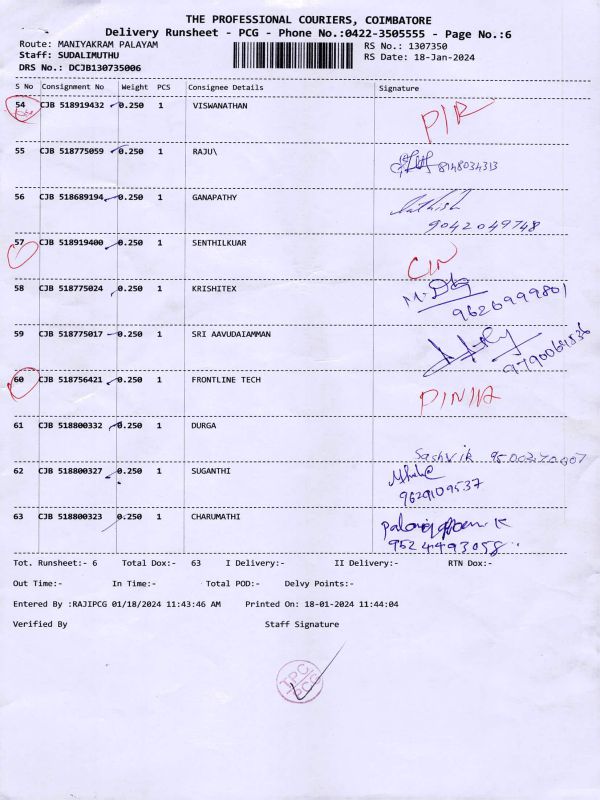 THE PROFESSIONAL COURIERS, COIMBATORE
Delivery Runsheet - PCG - Phone No.:0422-3505555 - Page No.:6
Route: MANIYAKRAM PALAYAM
RS No.: 1307350
Staff: SUDALIMUTHU
RS Date: 18-Jan-2024
DRS No.: DCJB130735006
S No Consignment No Weight PCS Consignee Details Signature
54 CJB 518919432 0.250 1 VISWANATHAN
55 CJB 518775059 0.250 1 RAJU\ 8148034313
56 CJB 518689194 0.250 1 GANAPATHY
9042049748
57 CJB 518919400 0.250 1 SENTHILKUAR
58 CJB 518775024 0.250 1 KRISHITEX
9620999801
59 CJB 518775017 0.250 1 SRI AAVUDAIAMMAN
60 CJB 518756421 0.250 1 FRONTLINE TECH
61 CJB 518800332 0.250 1 DURGA
Sashvik
62 CJB 518800327 0.250 1 SUGANTHI
9629109537
63 CJB 518800323 0.250 1 CHARUMATHI
9524493058
Tot. Runsheet:- 6 Total Dox:- 63 I Delivery:- II Delivery:- RTN Dox:-
Out Time:- In Time:- Total POD:- Delvy Points:-
Entered By :RAJIPCG 01/18/2024 11:43:46 AM Printed On: 18-01-2024 11:44:04
Verified By Staff Signature
TPC
PCG